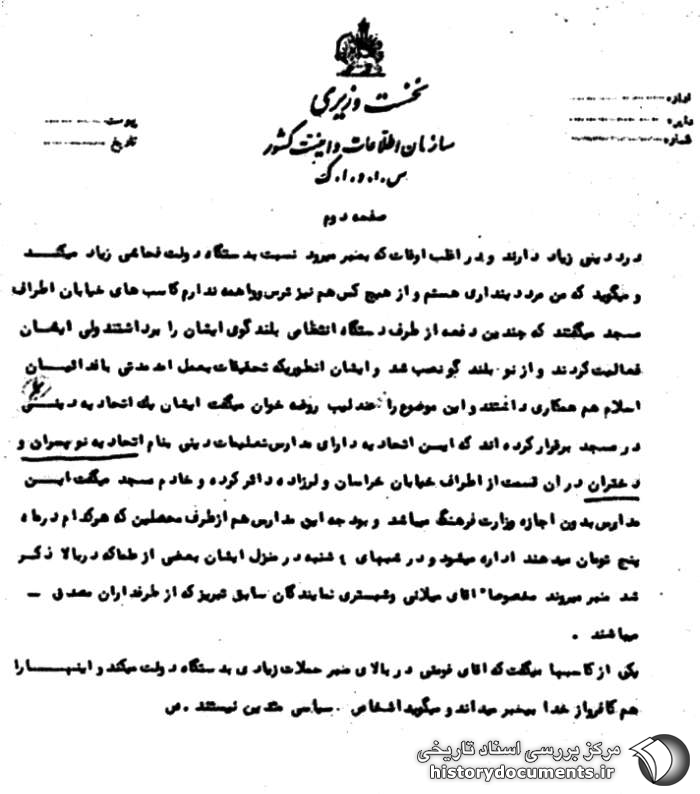 نخست وزیری
سازمان اطلاعات و امنیت کشور
س.ا.و.ا.ک
اداره
دایره
شماره
پیوست
تاریخ
صفحه دوم
درد دینی زیاد دارند و در اغلب اوقات که بمنبر میرود نسبت بدستگاه دولت فحاشی زیاد میکند
و میگوید که من مرد دینداری هستم و از هیچ کس هم نیز ترس و واهمه ندارم کاسب های خیابان اطراف
مسجد میگفتند که چندین دفعه از طرف دستگاه انتظامی بلند گوی ایشان را برداشتند ولی ایشان
فعالیت کردند و از نو بلند گو نصب شد و ایشان انطوریکه تحقیقات بعمل امد مدتی با فدائیان
اسلام هم همکاری داشتند و این موضوع را عندلیب روضه خوان میگفت ایشان یک اتحادیه دینی
در مسجد برقرار کرده اند که این اتحادیه دارای مدارس تعلیمات دینی بنام اتحادیه نو پسران و
دختران در ان قسمت از اطراف خیابان خراسان و لرزاده دائر کرده و خادم مسجد میگفت این
مدارس بدون اجازه وزارت فرهنگ میباشد و بودجه این مدارس هم از طرف محصلین که هر کدام در ماه
پنج تومان میدهند اداره میشود و در شبهای ٤ شنبه در منزل ایشان بعضی از علما که در بالا ذکر
شد منبر میروند مخصوصا" اقای میلانی و شبستری نمایندگان سابق تبریز که از طرفداران مصدق –
میباشند .
یکی از کاسبها میگفت که اقای فومنی در بالای منبر حملات زیادی بدستگاه دولت میکند و اینها را
هم کافر و از خدا بیخبر میداند و میگوید اشخاص . سیاسی متدین نیستند .ص
مرکز بررسی اسناد تاریخی
historydocuments.ir